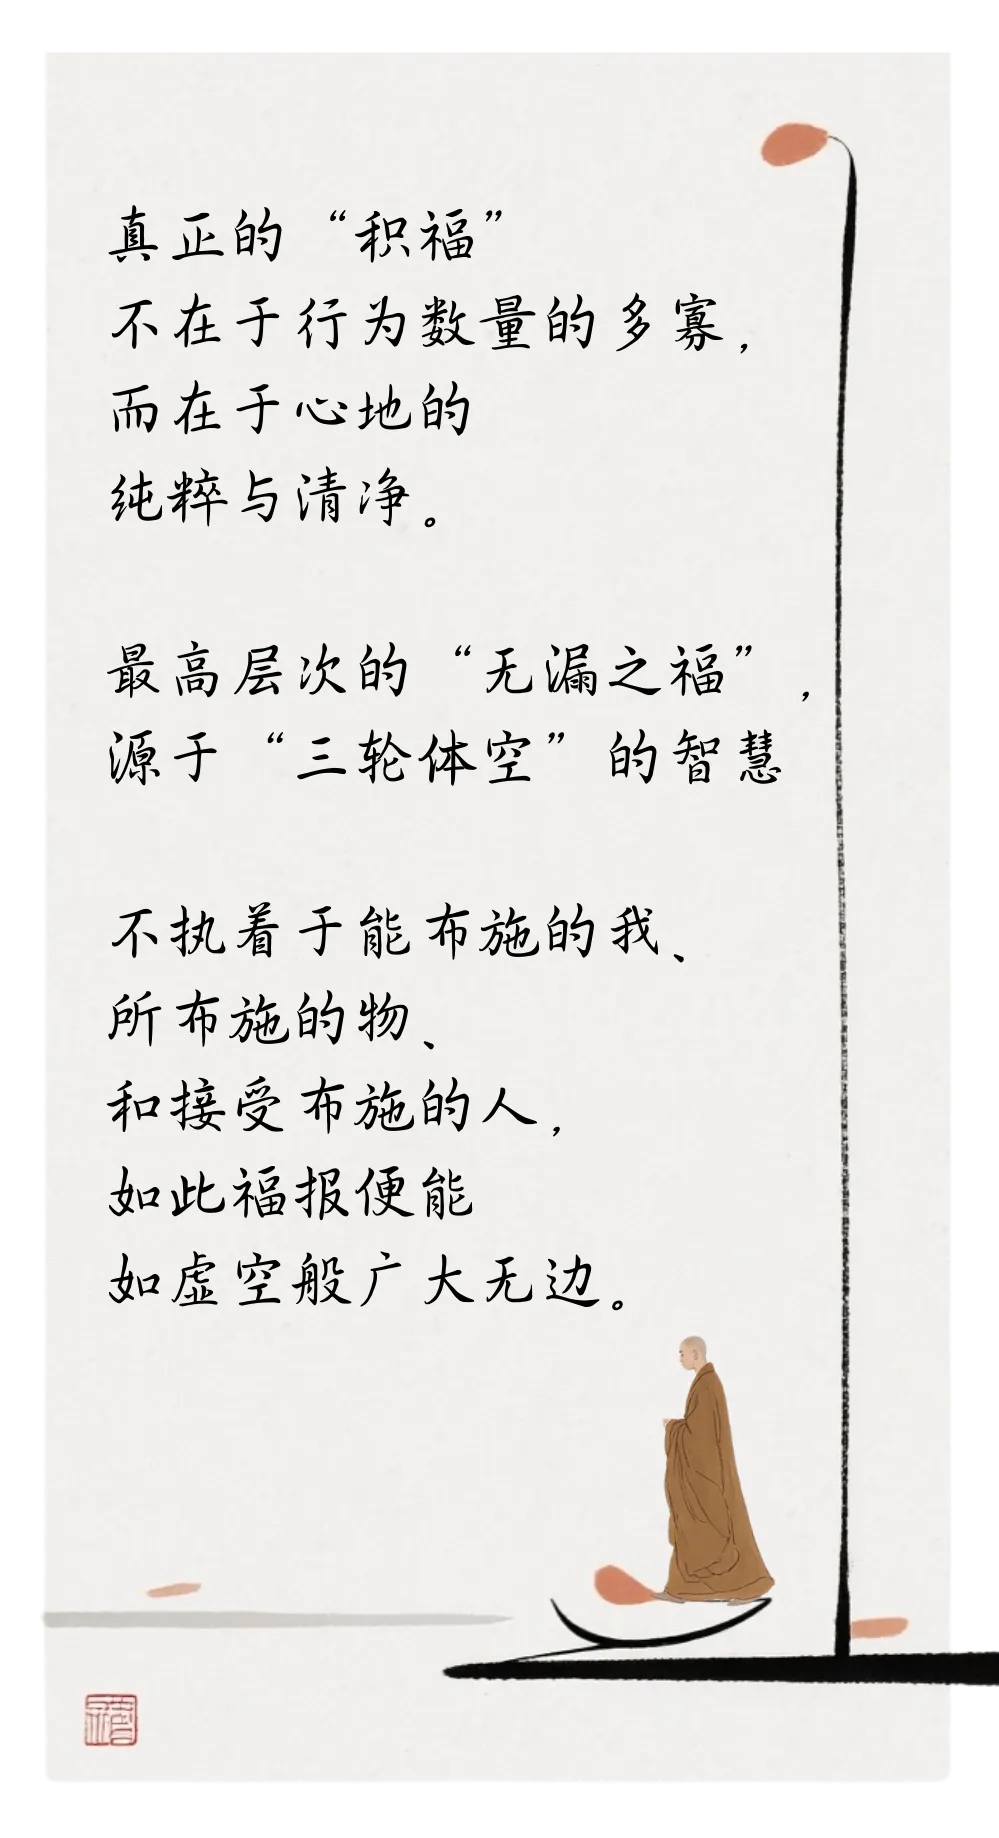 真正的“积福”
不在于行为数量的多寡，
而在于心地的
纯粹与清净。
最高层次的“无漏之福”，
源于“三轮体空”的智慧
不执着于能布施的我、
所布施的物、
和接受布施的人，
如此福报便能
如虚空般广大无边。